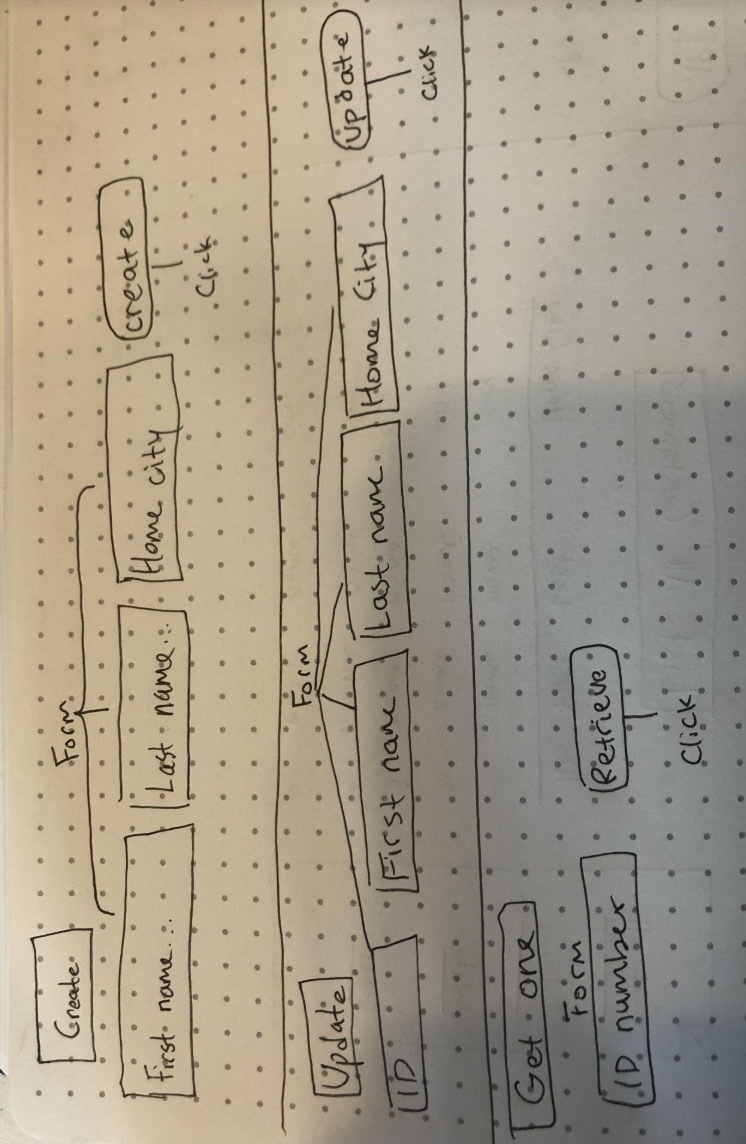 Create
Form
First name... Last name... Home city create
Click
Update
Form
ID First name Last name Home City Update
Click
Get one
Form
ID number Retrieve
Click